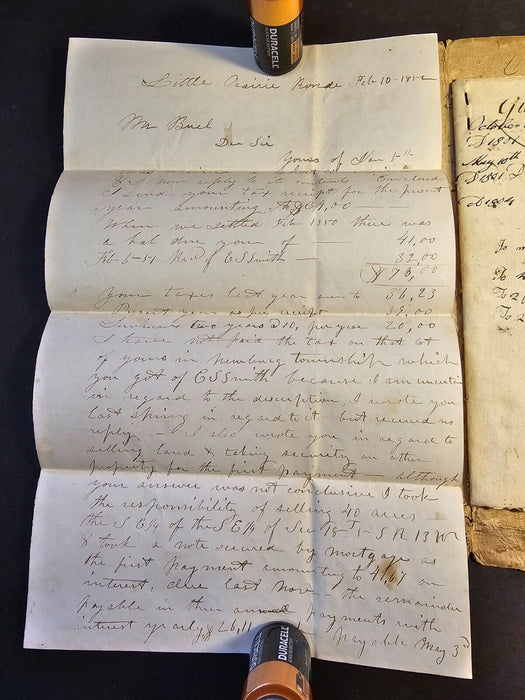 DURACELL
Little Prairie Ronde Feb 10 - 1852
Mr Buel
Dear Sir
Yours of Nov 5th
I now reply to its contents Enclosed
I send your tax receipt for the present
year amounting to $39,00
When we settled Feb 1850 there was
a bal due you of — 41,00
Feb 6 - 51 Rec'd of C S Smith — 32,00
$73,00
Your taxes last year am't to 36,23
Present year as per receipt 39,00
Services two years @ 10, per year 20,00
I have not paid the tax on that lot
of yours in Newburg township which
you got of C S Smith because I am uncertain
in regard to the description, I wrote you
last spring in regard to it but received no
reply — I also wrote you in regard to
selling land & taking security on other
property for the first payment — although
your answer was not conclusive I took
the responsibility of selling 40 acres —
the S E 1/4 of the S E 1/4 of Sec 18 T 5 S R 13 W
& took a note secured by mortgage as
the first payment amounting to 41,67 on
interest, due last Nov — the remainder
payable in three annual payments with
interest yearly, $26,11 payable May 3d
DURACELL
October
May 10th